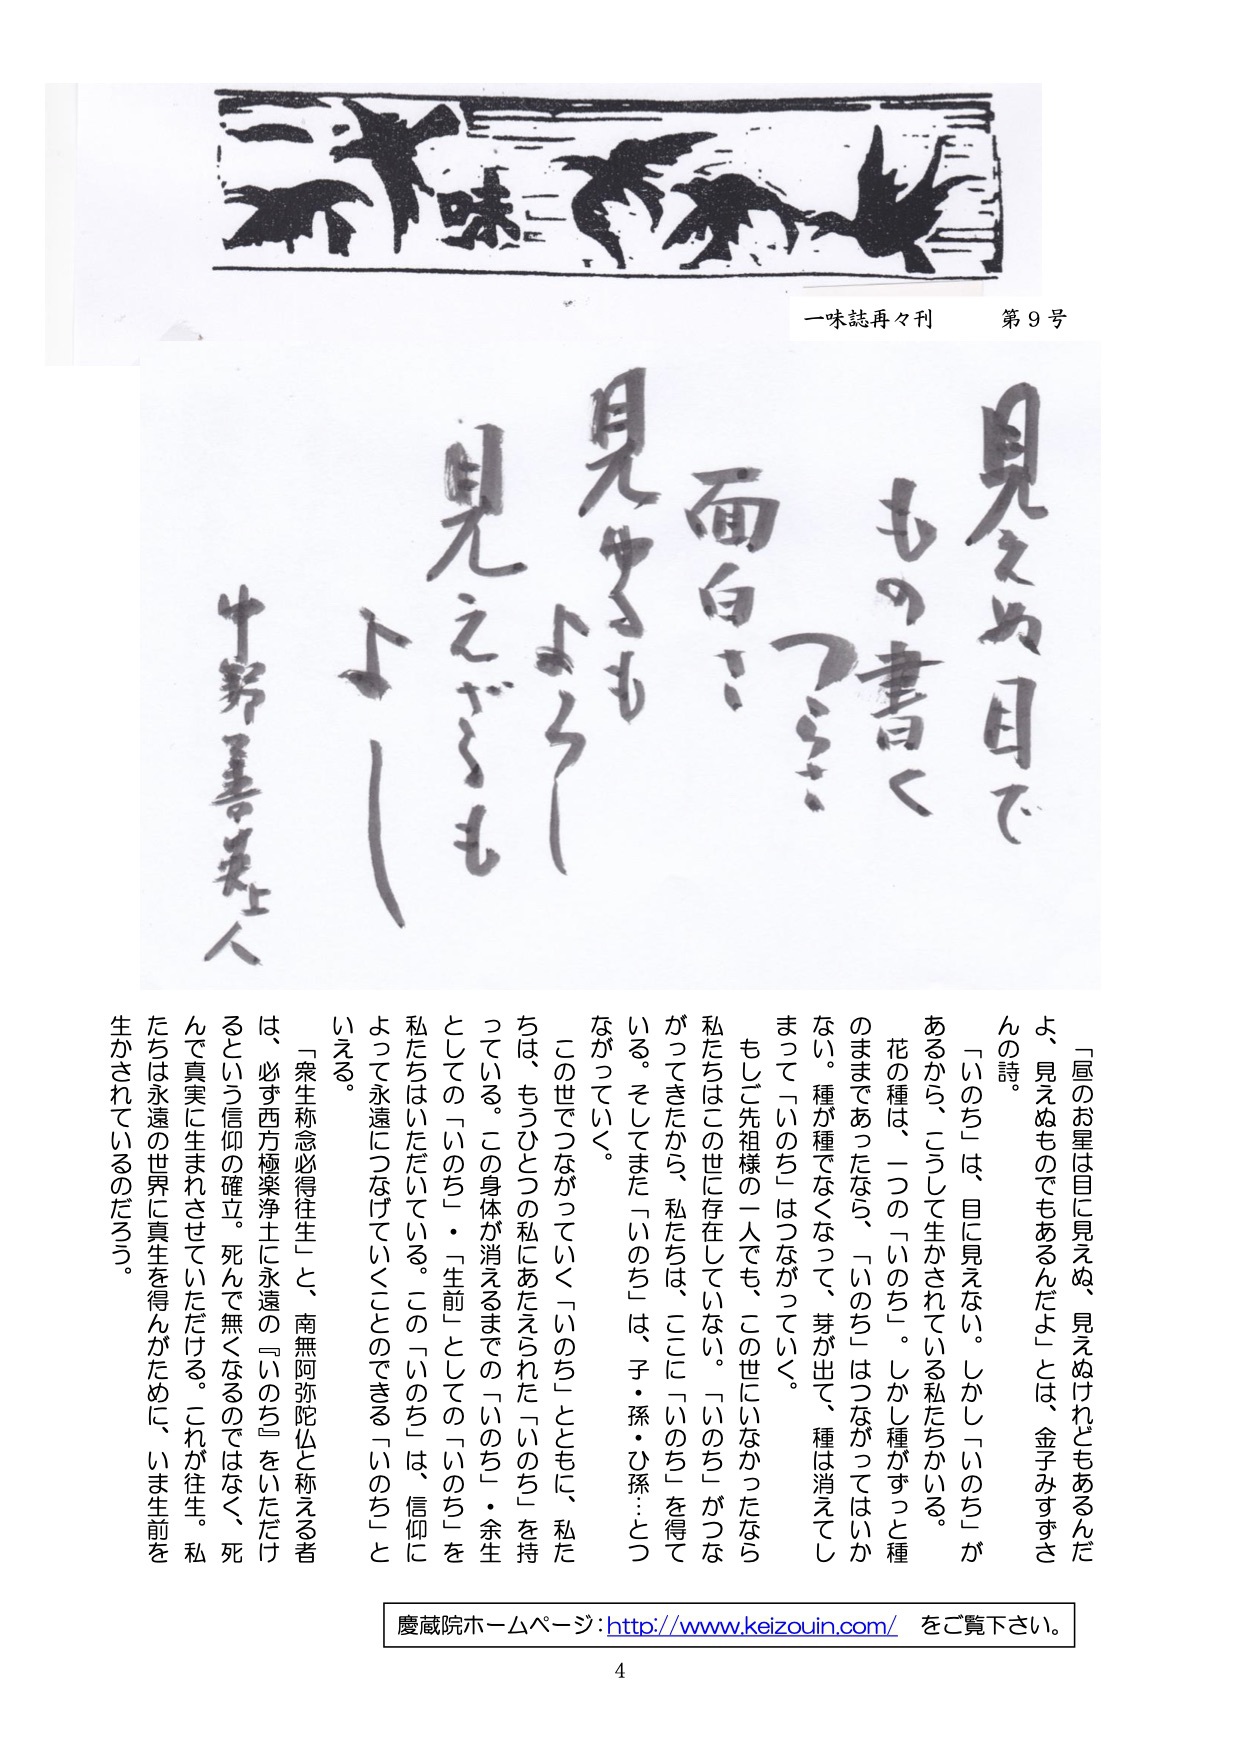 一味
一味誌再々刊　第９号
見えぬ目で
もの書く
つらさ
面白さ
見ゆるも
よろし
見えざるも
よし
中野善英上人
「昼のお星は目に見えぬ、見えぬけれどもあるんだ
よ、見えぬものでもあるんだよ」とは、金子みすずさ
んの詩。
「いのち」は、目に見えない。しかし「いのち」が
あるから、こうして生かされている私たちかいる。
花の種は、一つの「いのち」。しかし種がずっと種
のままであったなら、「いのち」はつながってはいか
ない。種が種でなくなって、芽が出て、種は消えてし
まって「いのち」はつながっていく。
もしご先祖様の一人でも、この世にいなかったなら
私たちはこの世に存在していない。「いのち」がつな
がってきたから、私たちは、ここに「いのち」を得て
いる。そしてまた「いのち」は、子・孫・ひ孫…とつ
ながっていく。
この世でつながっていく「いのち」とともに、私た
ちは、もうひとつの私にあたえられた「いのち」を持
っている。この身体が消えるまでの「いのち」・余生
としての「いのち」・「生前」としての「いのち」を
私たちはいただいている。この「いのち」は、信仰に
よって永遠につなげていくことのできる「いのち」と
いえる。
「衆生称念必得往生」と、南無阿弥陀仏と称える者
は、必ず西方極楽浄土に永遠の『いのち』をいただけ
るという信仰の確立。死んで無くなるのではなく、死
んで真実に生まれさせていただける。これが往生。私
たちは永遠の世界に真生を得んがために、いま生前を
生かされているのだろう。
慶蔵院ホームページ：http://www.keizouin.com/　をご覧下さい。
4